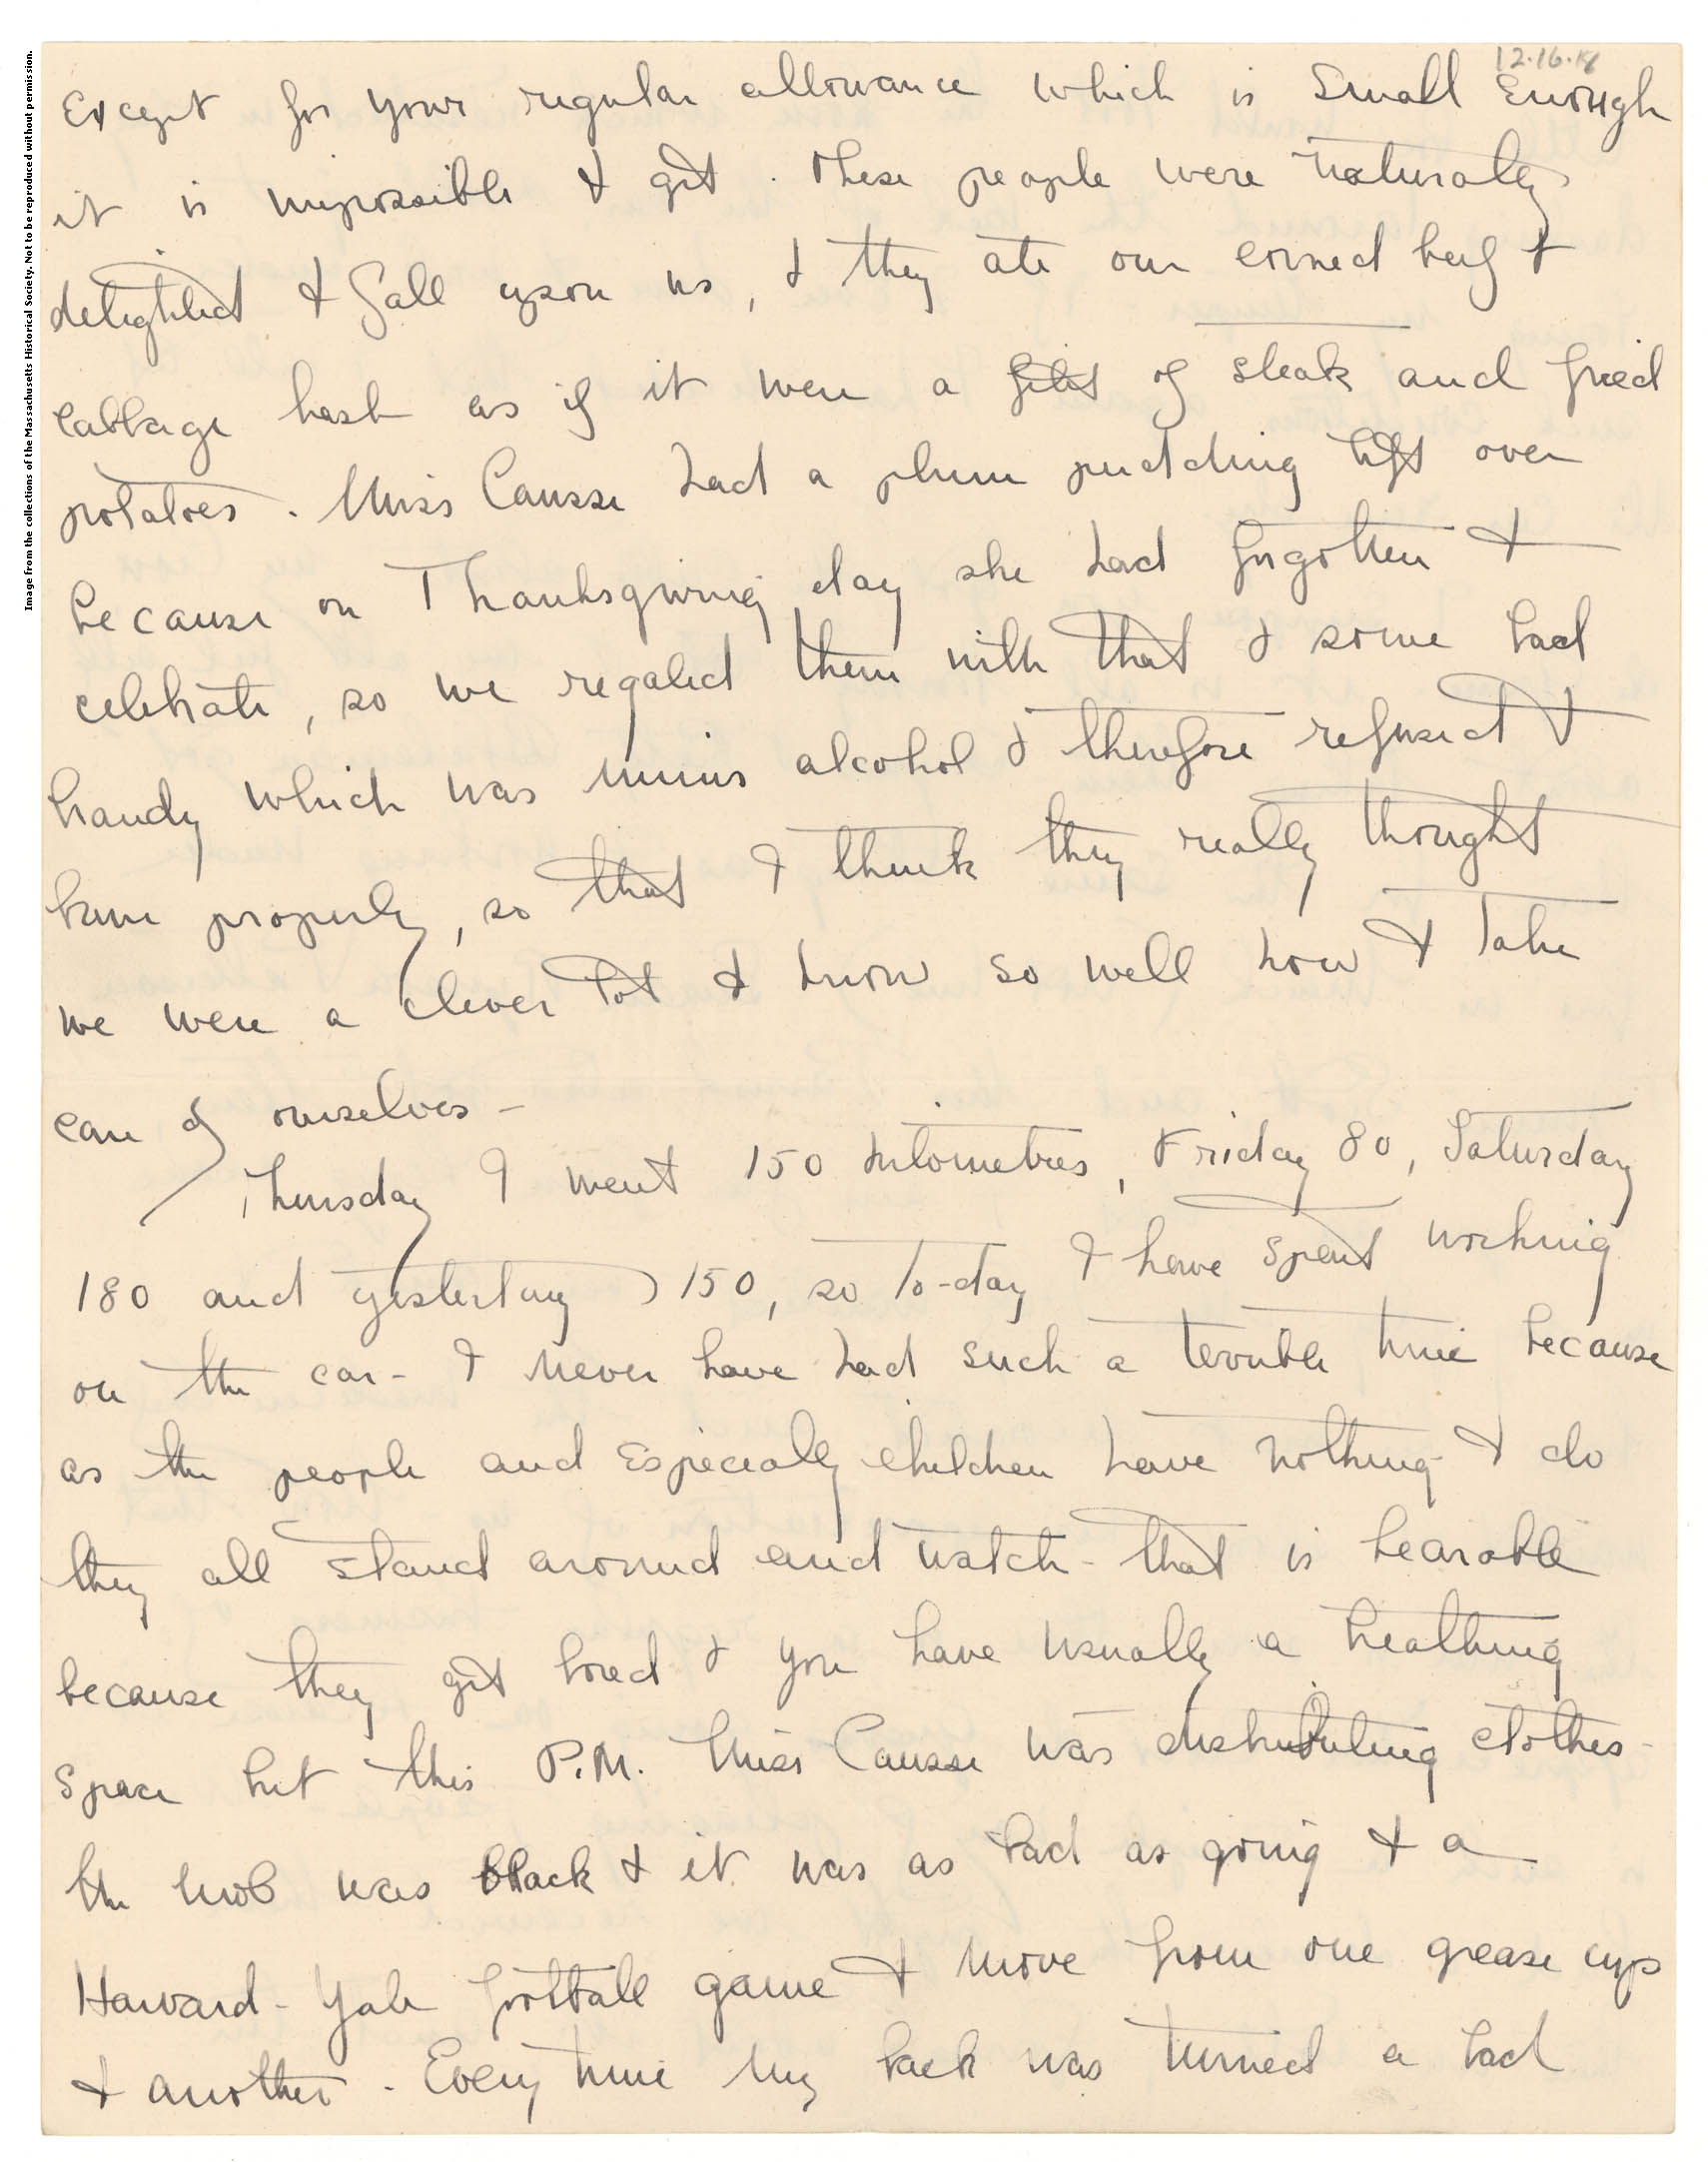 Image from the collections of the Massachusetts Historical Society. Not to be reproduced without permission.
12.16.18
Except for your regular allowance which is small enough
it is impossible to get. These people were naturally
delighted to fall upon us, & they ate our corned beef &
cabbage hash as if it were a filet of steak and fried
potatoes. Miss Causse had a plum pudding left over
because on Thanksgiving day she had forgotten to
celebrate, so we regaled them with that & some bad
brandy which was minus alcohol & therefore refused to
burn properly, so that I think they really thought
we were a clever lot & know so well how to take
care of ourselves -
Thursday I went 150 kilometres, Friday 80, Saturday
180 and yesterday 150, so to-day I have spent working
on the car - I never have had such a terrible time because
as the people and especially children have nothing to do
they all stand around and watch - that is bearable
because they get bored & you have usually a breathing
space but this P.M. Miss Causse was distributing clothes -
the mob was black & it was as bad as going to a
Harvard - Yale football game to move from one grease cup
to another. Every time my back was turned a bad